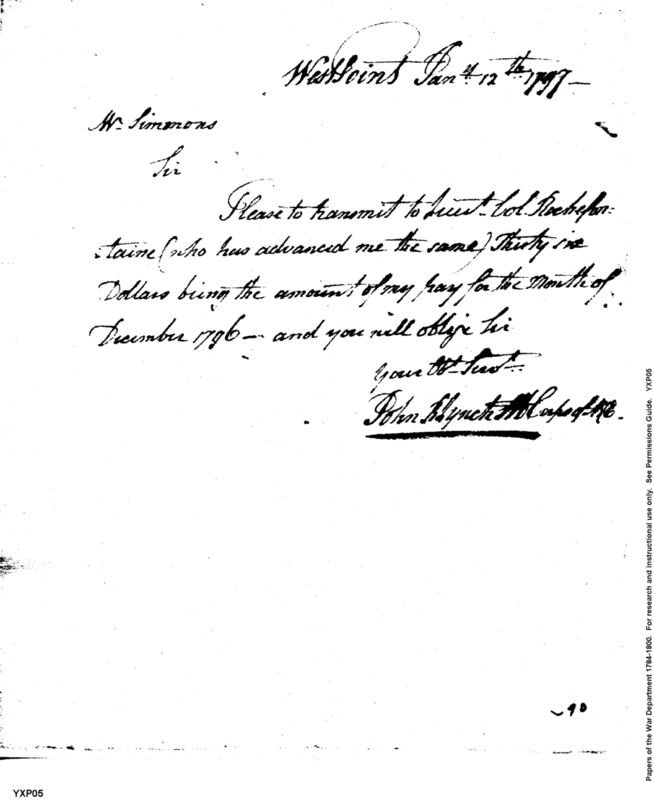 WestPoint Jany. 12th 1797 —
Mr. Simmons
Sir
Please to transmit to Lieut. Col. Rochefon-
-taine (who has advanced me the same) Thirty six
Dollars being the amount of my pay for the Month of
December 1796 — and you will oblige Sir
Your Obt. Servt.
John Lynch Corps of A&E.
90
YXP05
Papers of the War Department 1784-1800. For research and instructional use only. See Permissions Guide. YXP05